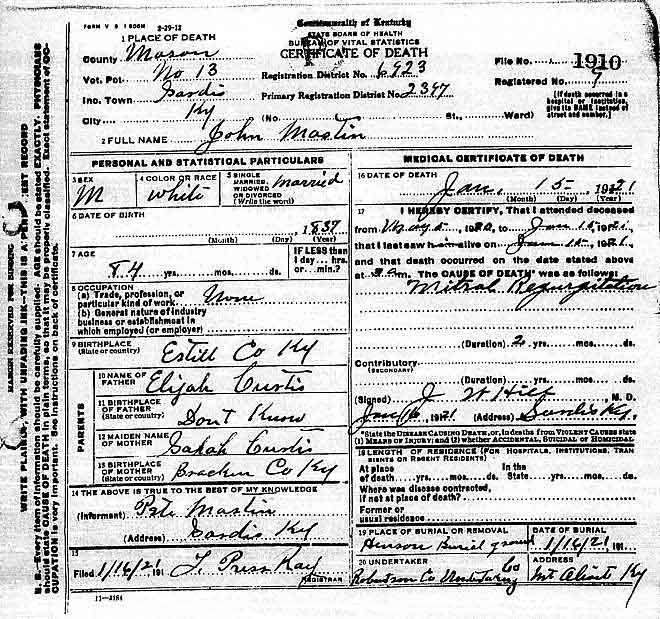 FORM V S 1 500M 2-29-12
Commonwealth of Kentucky
STATE BOARD OF HEALTH
BUREAU OF VITAL STATISTICS
CERTIFICATE OF DEATH
1 PLACE OF DEATH
County Mason
Vot. Pct. No 13
Inc. Town Sardis
City Ky
Registration District No. 6923
Primary Registration District No. 2347
(No. St., Ward)
File No. 1910
Registered No. 9
[If death occurred in a hospital or institution, give its NAME instead of street and number.]
2 FULL NAME John Mastin
PERSONAL AND STATISTICAL PARTICULARS
3 SEX M
4 COLOR OR RACE white
5 SINGLE MARRIED, WIDOWED OR DIVORCED (Write the word) Married
6 DATE OF BIRTH , 1837
(Month) (Day) (Year)
7 AGE 84 yrs. mos. ds.
IF LESS than 1 day... hrs. or min.?
8 OCCUPATION
(a) Trade, profession, or particular kind of work None
(b) General nature of industry business or establishment in which employed (or employer)
9 BIRTHPLACE (State or country) Estill Co Ky
PARENTS
10 NAME OF FATHER Elijah Curtis
11 BIRTHPLACE OF FATHER (State or country) Dont Know
12 MAIDEN NAME OF MOTHER Sarah Curtis
13 BIRTHPLACE OF MOTHER (State or country) Bracken Co Ky
14 THE ABOVE IS TRUE TO THE BEST OF MY KNOWLEDGE
(Informant) Pete Mastin
(Address) Sardis Ky
15
Filed 1/16/21 191 REGISTRAR
11-3184
MEDICAL CERTIFICATE OF DEATH
16 DATE OF DEATH
Jan, 15- 1921
(Month) (Day) (Year)
17 I HEREBY CERTIFY, That I attended deceased
from May 5- 1920, to Jan 15, 1921
that I last saw him alive on Jan 15- 1921,
and that death occurred on the date stated above
at m. The CAUSE OF DEATH* was as follows:
Mitral Regurgitation
(Duration) 2 yrs. mos. ds.
Contributory (SECONDARY)
(Duration) yrs. mos. ds.
(Signed) J W Hill M. D.
Jan 16 1921 (Address) Sardis Ky.
*State the DISEASE CAUSING DEATH, or, in deaths from VIOLENT CAUSES state
(1) MEANS OF INJURY; and (2) whether ACCIDENTAL, SUICIDAL OR HOMICIDAL.
18 LENGTH OF RESIDENCE (FOR HOSPITALS, INSTITUTIONS, TRANSIENTS OR RECENT RESIDENTS)
At place of death yrs. mos. ds. In the State yrs. mos. ds.
Where was disease contracted, if not at place of death?
Former or usual residence
19 PLACE OF BURIAL OR REMOVAL Henson Burial ground
DATE OF BURIAL 1/16/21 191
20 UNDERTAKER Robertson Co Undertaking Co
ADDRESS Mt Olivet Ky
MARGIN RESERVED FOR BINDING
WRITE PLAINLY, WITH UNFADING INK—THIS IS A PERMANENT RECORD
N. B.—Every item of information should be carefully supplied. AGE should be stated EXACTLY. PHYSICIANS
should state CAUSE OF DEATH in plain terms, so that it may be properly classified. Exact statement of OC-
CUPATION is very important. See instructions on back of certificate.